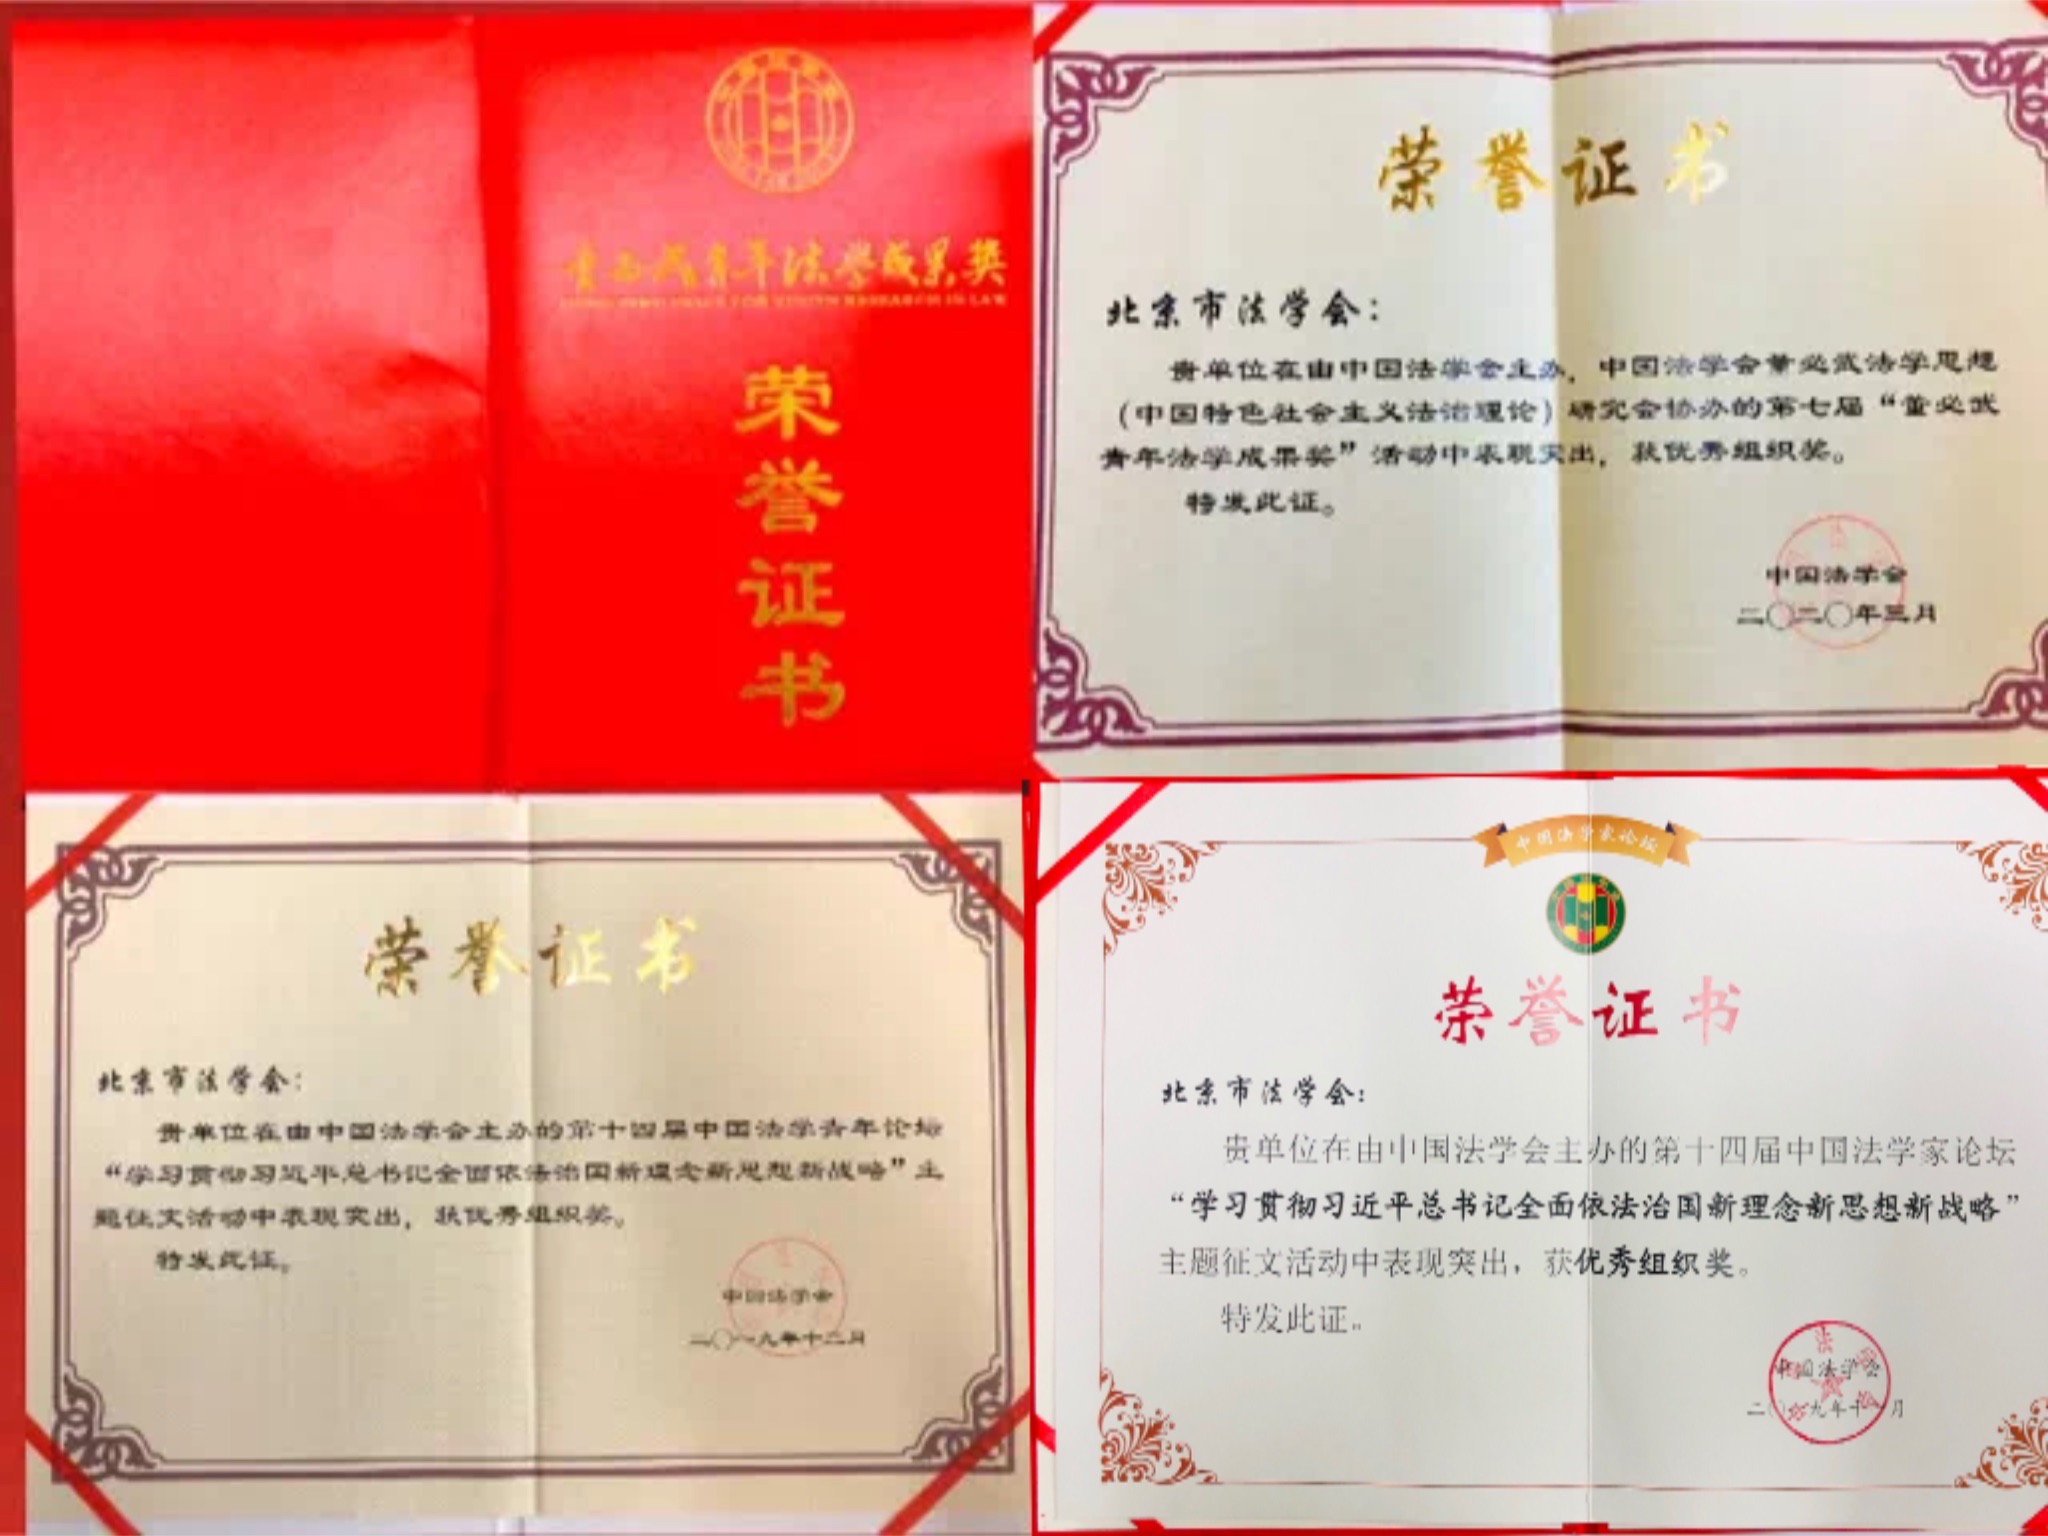 董必武青年法学成果奖
荣
誉
证
书
荣誉证书
北京市法学会：
贵单位在由中国法学会主办，中国法学会董必武法学思想
（中国特色社会主义法治理论）研究会协办的第七届“董必武
青年法学成果奖”活动中表现突出，获优秀组织奖。
特发此证。
中国法学会
二〇二〇年三月
荣誉证书
北京市法学会：
贵单位在由中国法学会主办的第十四届中国法学青年论坛
“学习贯彻习近平总书记全面依法治国新理念新思想新战略”主
题征文活动中表现突出，获优秀组织奖。
特发此证。
中国法学会
二〇一九年十二月
中国法学家论坛
荣誉证书
北京市法学会：
贵单位在由中国法学会主办的第十四届中国法学家论坛
“学习贯彻习近平总书记全面依法治国新理念新思想新战略”
主题征文活动中表现突出，获优秀组织奖。
特发此证。
中国法学会